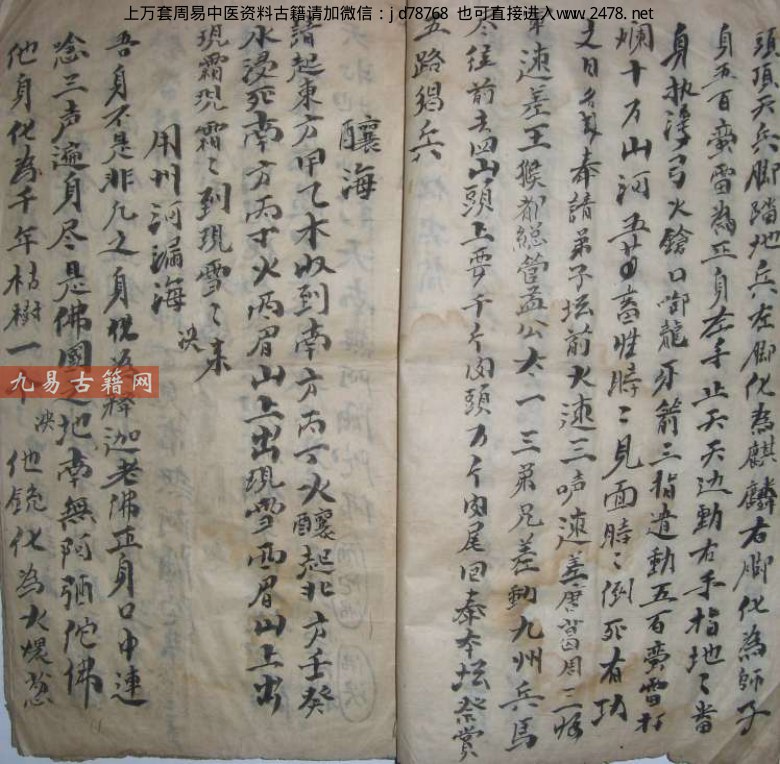 上万套周易中医资料古籍请加微信：jd78768 也可直接进入www.2478.net
頭頂天兵脚踏地兵左脚化為麒麟右脚化為師子
身五百蛮雷為正身左手止天天边動右手指地地
身执 弓火鎗口啣龍牙箭三指遣動五百蛮雷打
爛十万山河五 畜牲時々見面時々倒死有功
文日 奉請弟子坛前火速三声速差唐 周三將
速差王猴都總管孟公太一三弟兄差動九州兵馬
令往前去四山頭上要千斤肉頭万斤肉尾回奉本坛祭賞
五路猖兵
釀海
請起東方甲乙木收到南方丙丁火釀起北方壬癸
水浸死南方丙丁火丙眉山上出現雪 眉山上出
現霜現霜々到現雪々来
用州河漏海 决
吾身不是非凡之身 釋迦老佛正身口中連
念三声遍身尽是佛國之地南無阿弥陀佛
他身化為千年枯樹一 决 他 化為火煨
九易古籍网